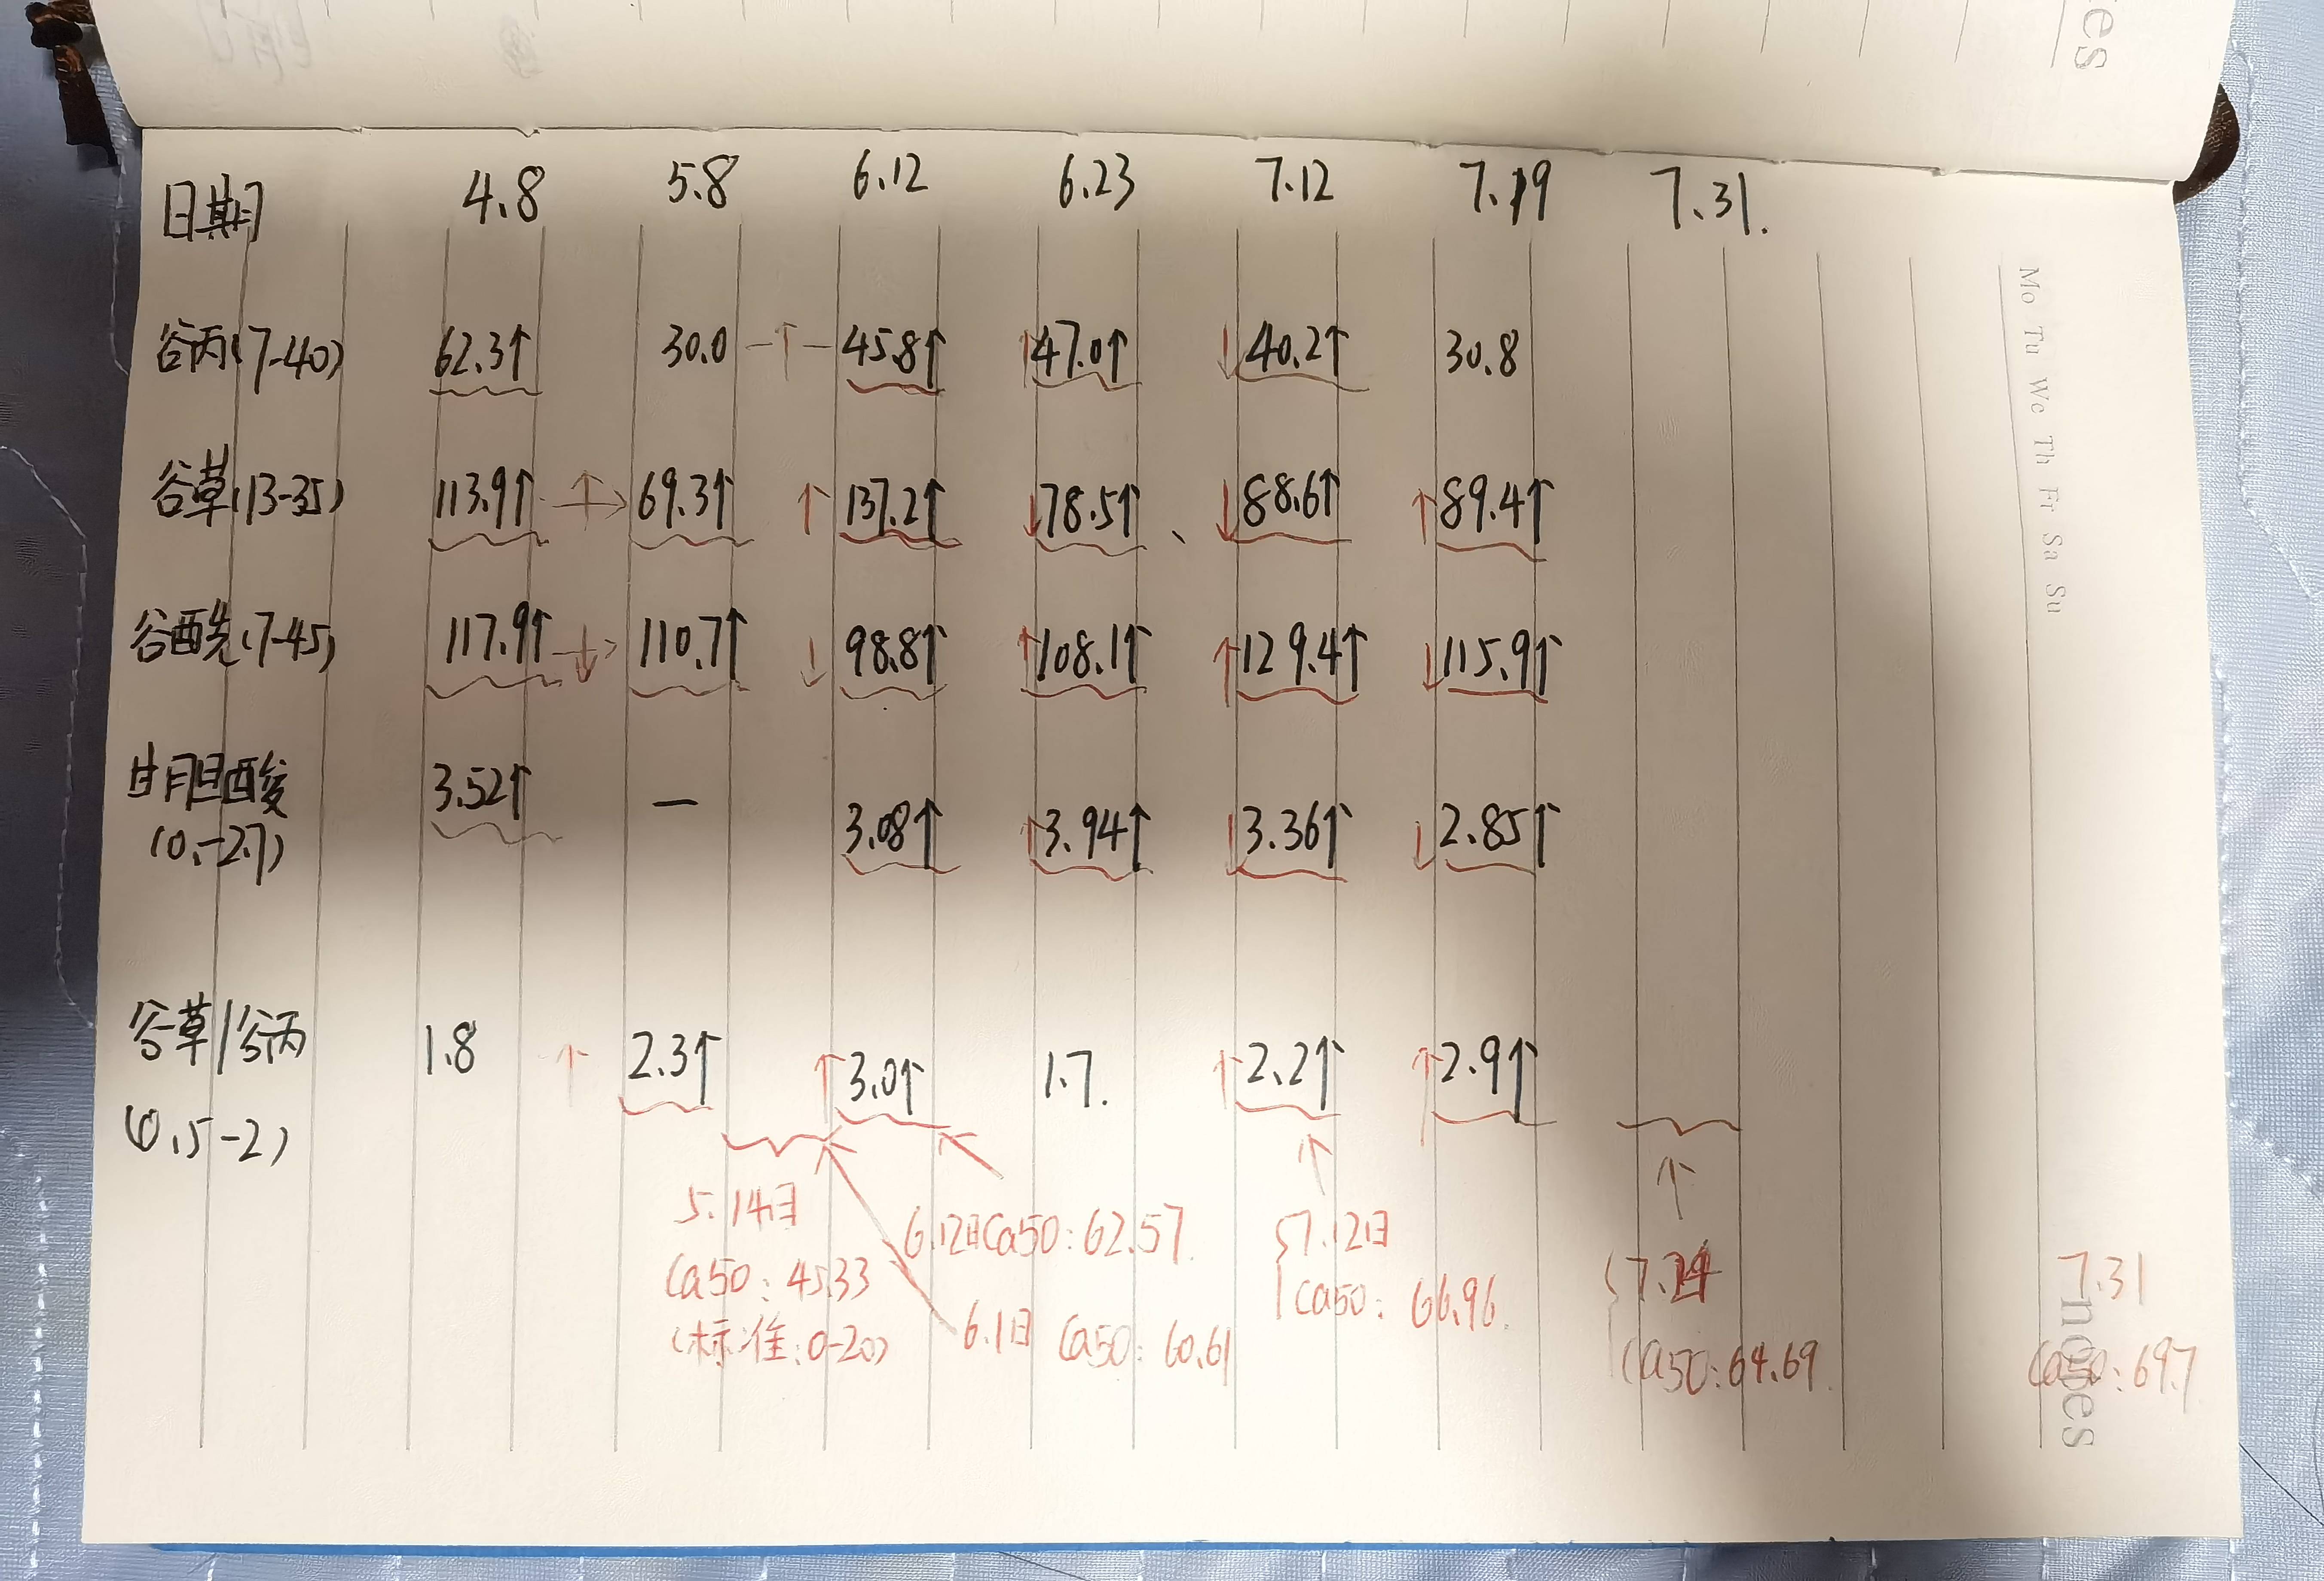 日期 4.8 5.8 6.12 6.23 7.12 7.19 7.31.
谷丙(7-40) 62.3↑ 30.0 —↑— 45.8↑ ↑47.0↑ ↓40.2↑ 30.8
谷草(13-35) 113.9↑ 69.3↑ ↑137.2↑ ↓78.5↑ 、 ↓88.6↑ ↑89.4↑
谷酶先(7-45) 117.9↑ ↓ 110.7↑ ↓98.8↑ ↑108.1↑ ↑129.4↑ ↓115.9↑
甘胆酸 3.52↑ — 3.08↑ ↑3.94↑ ↓3.36↑ ↓2.85↑
(0.-2.7)
谷草/谷丙 1.8 ↑ 2.3↑ ↑3.0↑ 1.7. ↑2.2↑ ↑2.9↑
(0.5-2)
5.14日
Ca50: 45.33
(标准:0-20)
6.12日Ca50:62.57.
6.1日 Ca50: 60.61
7.12日
Ca50: 66.96.
Ca50:64.69.
7.31
Ca50:69.7
Mo Tu We Th Fr Sa Su